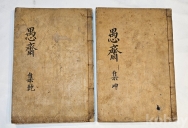 愚齋
集乾
愚齋
集坤